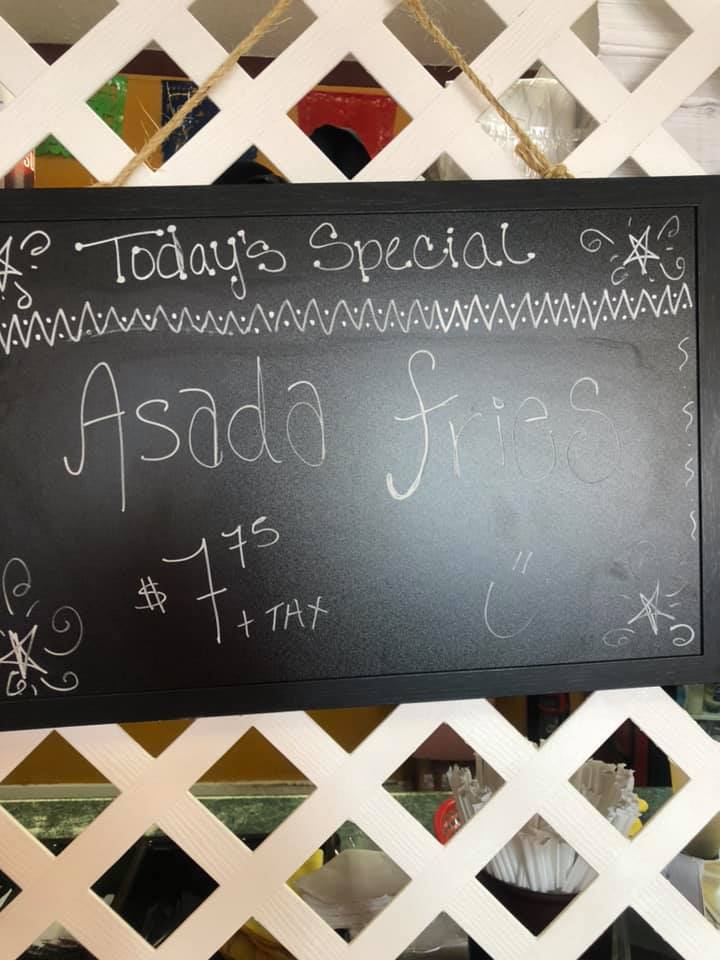 Today's Special
Asada fries
$7 75
+ TAX